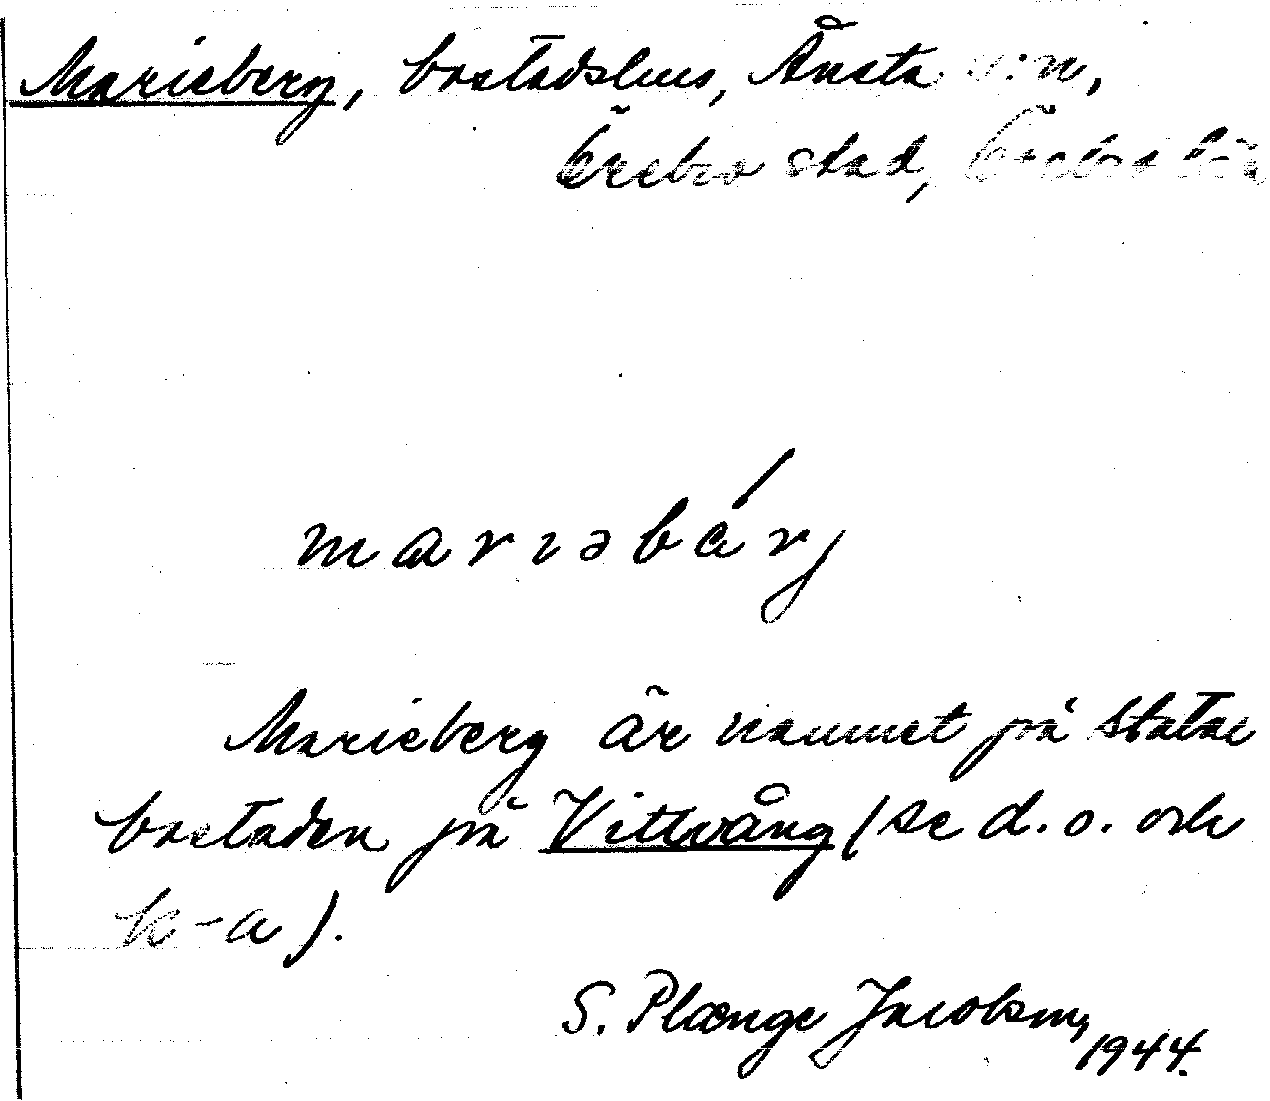 Marieberg, bostadshus, Ånsta s:n,
Örebro stad, Örebro län
marıəbǽrj
Marieberg är namnet på statar
bostaden på Vittvång (se d.o. och
k-a).
S. Plænge Jacobson,
1944.